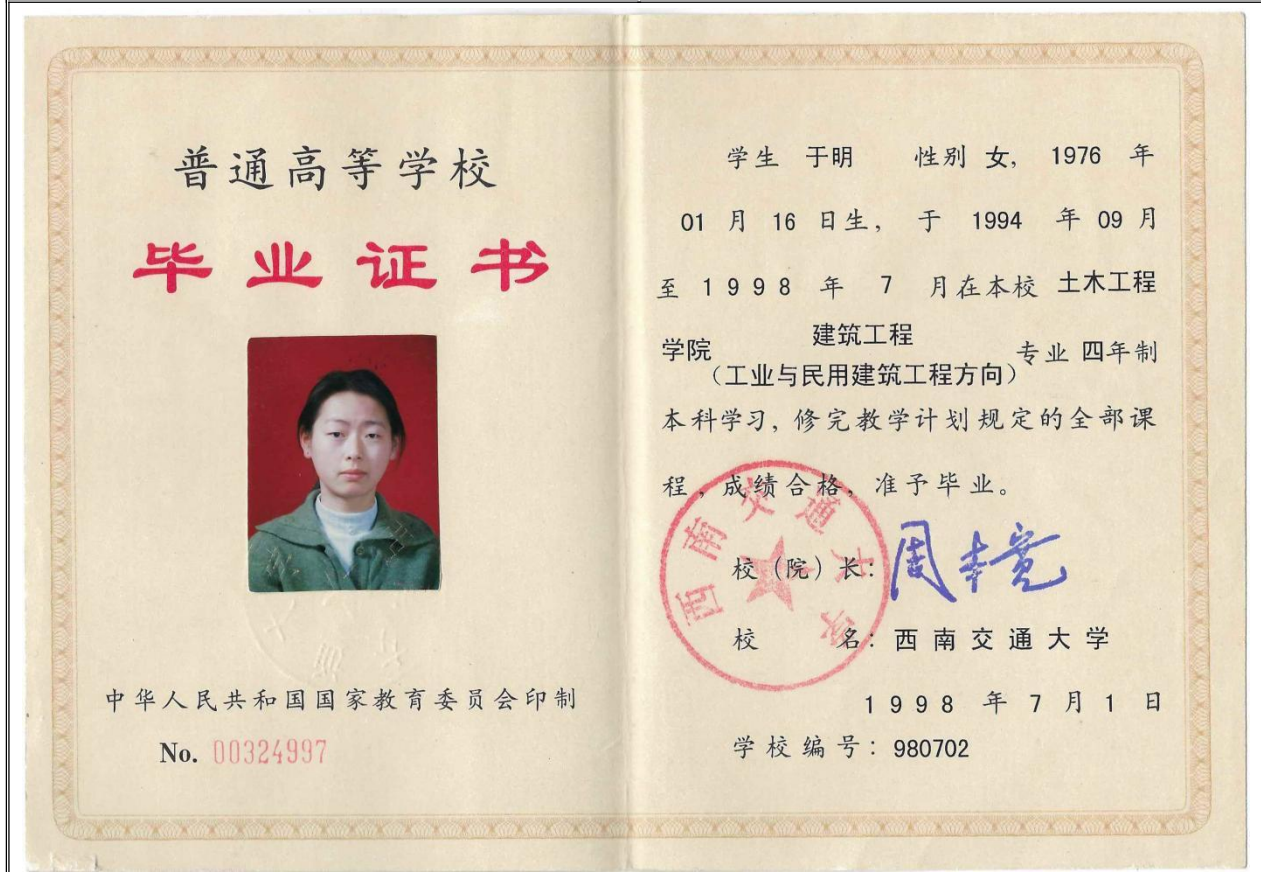 普通高等学校
毕业证书
中华人民共和国国家教育委员会印制
No. 00324997
学生 于明 性别 女, 1976 年
01 月 16 日生, 于 1994 年 09 月
至 1998 年 7 月在本校 土木工程
学院 建筑工程 专业 四年制
（工业与民用建筑工程方向）
本科学习, 修完教学计划规定的全部课
程, 成绩合格, 准予毕业。
校（院）长: 周本宽
校 名: 西南交通大学
西南交通大学
1998 年 7 月 1 日
学校编号: 980702